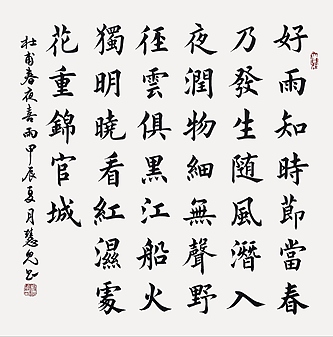 好雨知時節當春
乃發生随風潛入
夜潤物細無聲野
徑雲俱黑江船火
獨明曉看紅濕處
花重錦官城
杜甫春夜喜雨甲辰夏月慧兒书